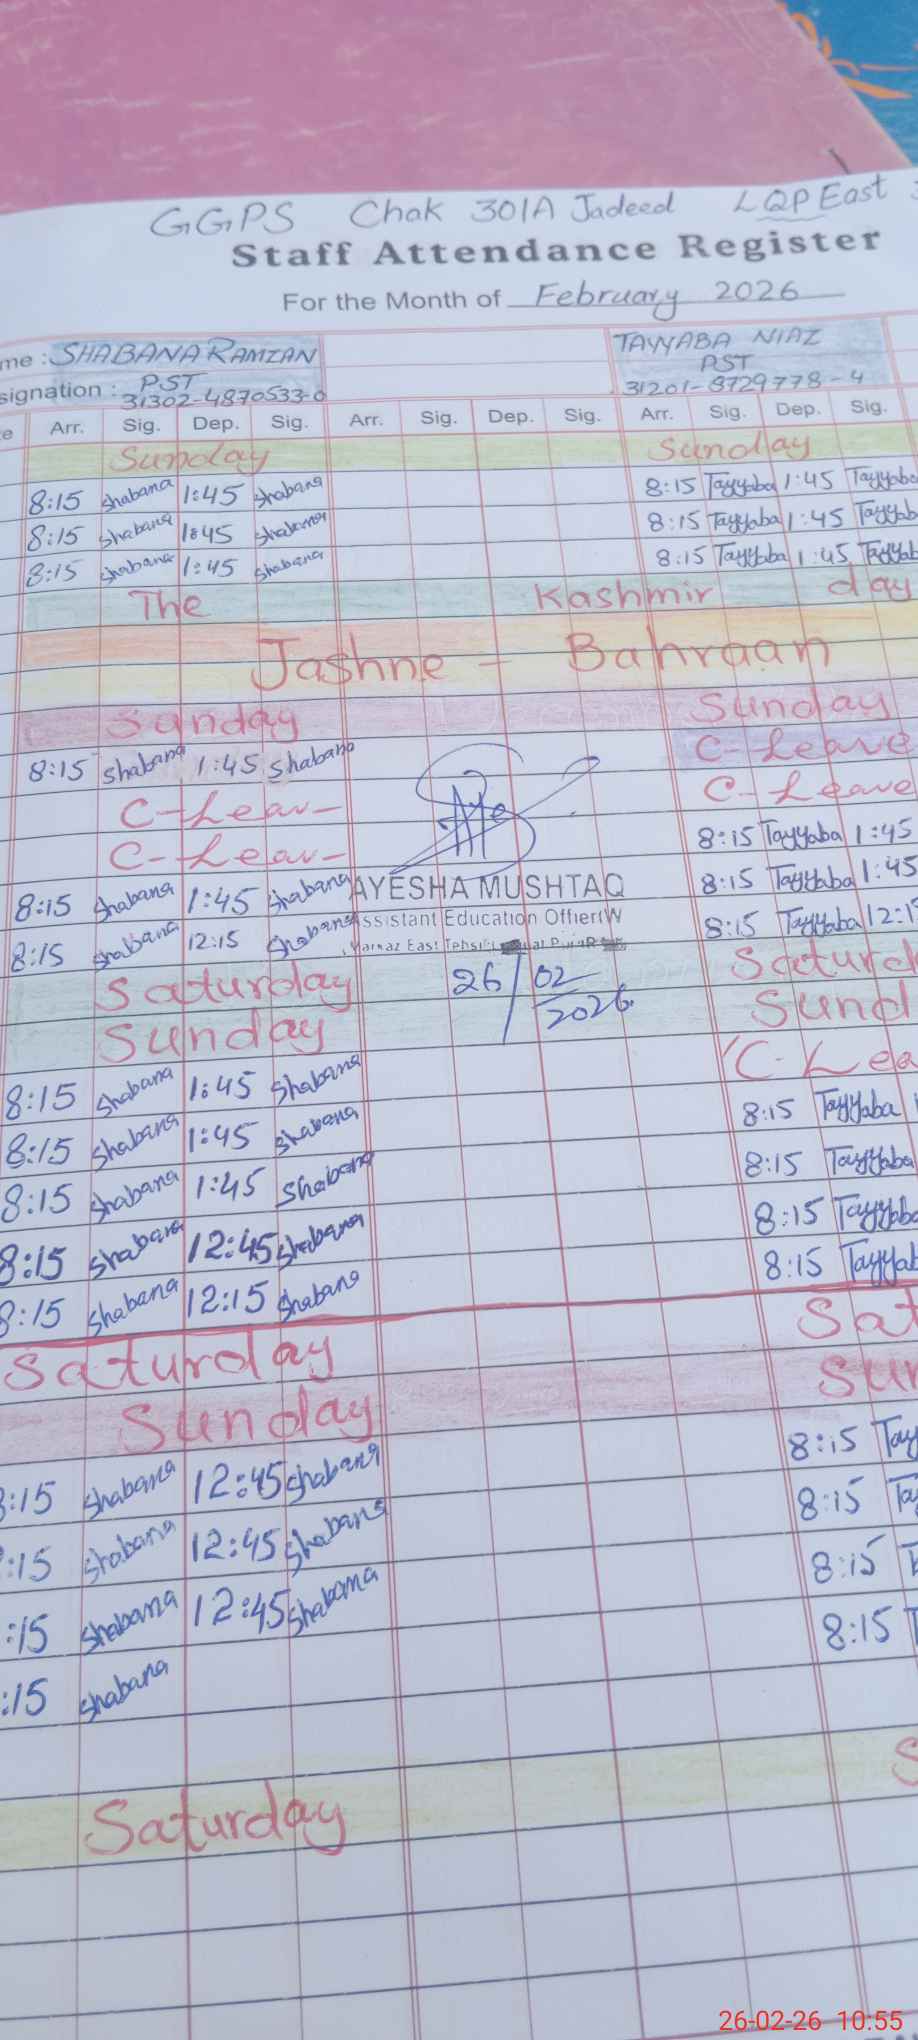 GGPS Chak 301A Jadeed LQP East
Staff Attendance Register
For the Month of February 2026
me : SHABANA RAMZAN TAYYABA NIAZ
signation : PST PST
31302-4870533-0 31201-8729778-4
e Arr. Sig. Dep. Sig. Arr. Sig. Dep. Sig. Arr. Sig. Dep. Sig.
Sunday Sunday
8:15 Shabana 1:45 Shabana 8:15 Tayyaba 1:45 Tayyaba
8:15 Shabana 1:45 Shabana 8:15 Tayyaba 1:45 Tayyab
8:15 Shabana 1:45 Shabana 8:15 Tayyaba 1:45 Tayyab
The Kashmir day
Jashne - Bahraan
Sunday Sunday
8:15 Shabana 1:45 Shabana C-Leave
C-Leav- C-Leave
C-Leav- 8:15 Tayyaba 1:45
8:15 Shabana 1:45 Shabana AYESHA MUSHTAQ 8:15 Tayyaba 1:45
8:15 Shabana 12:15 Shabana Assistant Education Officer(W 8:15 Tayyaba 12:15
Markaz East Tehsil
Saturday 26/02/2026 Saturd
Sunday Sund
8:15 Shabana 1:45 Shabana C-Lea
8:15 Shabana 1:45 Shabana 8:15 Tayyaba 1
8:15 Shabana 1:45 Shabana 8:15 Tayyaba
8:15 Shabana 12:45 Shabana 8:15 Tayyaba
8:15 Shabana 12:15 Shabana 8:15 Tayyab
Saturday Sat
Sunday Sun
8:15 Shabana 12:45 Shabana 8:15 Tay
:15 Shabana 12:45 Shabana 8:15 Ta
:15 Shabana 12:45 Shabana 8:15 T
:15 Shabana 8:15 T
Saturday S
26-02-26 10:55